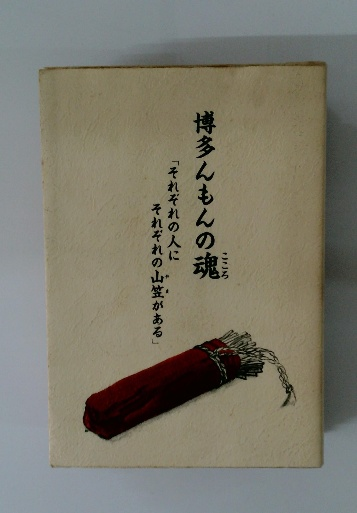 博多んもんの魂
こころ
「それぞれの人に
それぞれの山笠がある」